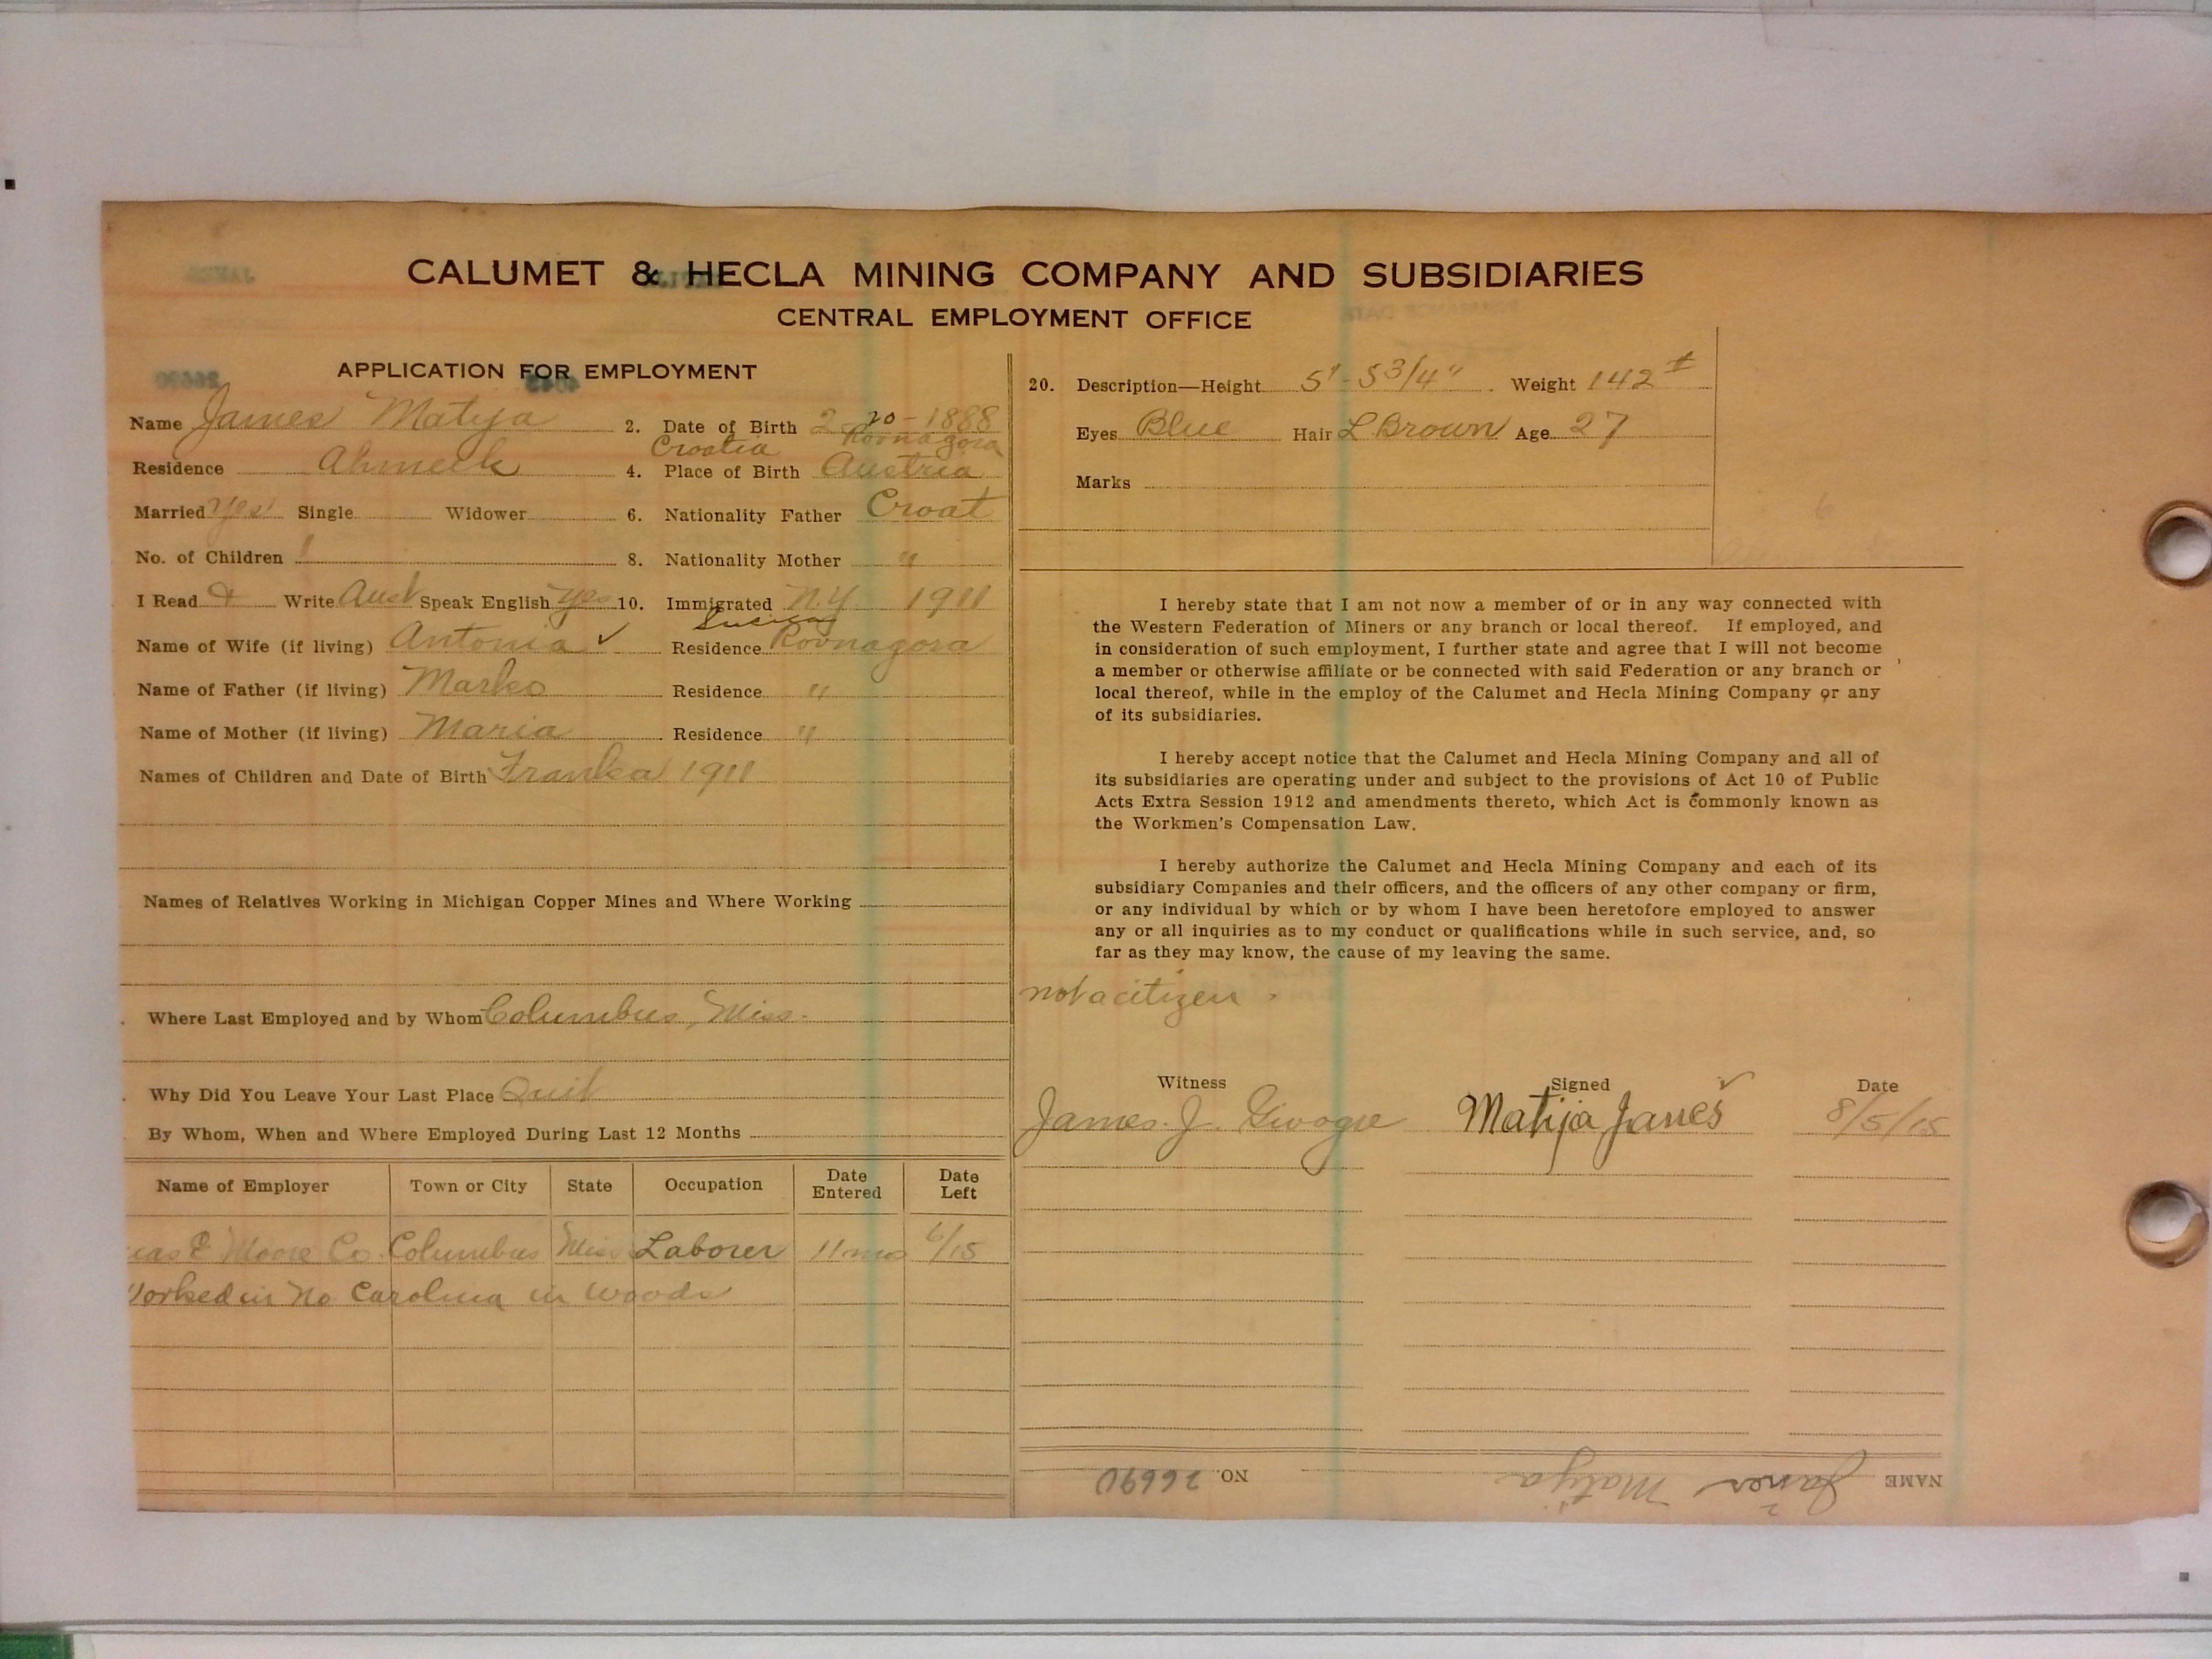 CALUMET & HECLA MINING COMPANY AND SUBSIDIARIES
CENTRAL EMPLOYMENT OFFICE
APPLICATION FOR EMPLOYMENT
Name James Matija 2. Date of Birth 2-20-1888
Croatia Rovnagora
Residence Ahmeek 4. Place of Birth Austria
Married Yes Single Widower 6. Nationality Father Croat
No. of Children 1 8. Nationality Mother "
I Read & Write Aust Speak English Yes 10. Immigrated N.Y. 1911
Name of Wife (if living) Antonia ✓ Residence Rovnagora
Name of Father (if living) Marko Residence "
Name of Mother (if living) Maria Residence "
Names of Children and Date of Birth Franka 1911
Names of Relatives Working in Michigan Copper Mines and Where Working
Where Last Employed and by Whom Columbus, Miss.
Why Did You Leave Your Last Place Quit
By Whom, When and Where Employed During Last 12 Months
Name of Employer Town or City State Occupation Date Entered Date Left
E Moore Co. Columbus Miss Laborer 11 mos 6/15
Worked in No Carolina in woods
20. Description—Height 5'-5 3/4" Weight 142 #
Eyes Blue Hair L Brown Age 27
Marks
I hereby state that I am not now a member of or in any way connected with
the Western Federation of Miners or any branch or local thereof. If employed, and
in consideration of such employment, I further state and agree that I will not become
a member or otherwise affiliate or be connected with said Federation or any branch or
local thereof, while in the employ of the Calumet and Hecla Mining Company or any
of its subsidiaries.
I hereby accept notice that the Calumet and Hecla Mining Company and all of
its subsidiaries are operating under and subject to the provisions of Act 10 of Public
Acts Extra Session 1912 and amendments thereto, which Act is commonly known as
the Workmen's Compensation Law.
I hereby authorize the Calumet and Hecla Mining Company and each of its
subsidiary Companies and their officers, and the officers of any other company or firm,
or any individual by which or by whom I have been heretofore employed to answer
any or all inquiries as to my conduct or qualifications while in such service, and, so
far as they may know, the cause of my leaving the same.
not a citizen
Witness Signed Date
James. J. Matija Janes 8/5/15
NAME Janes Matija NO. 26690